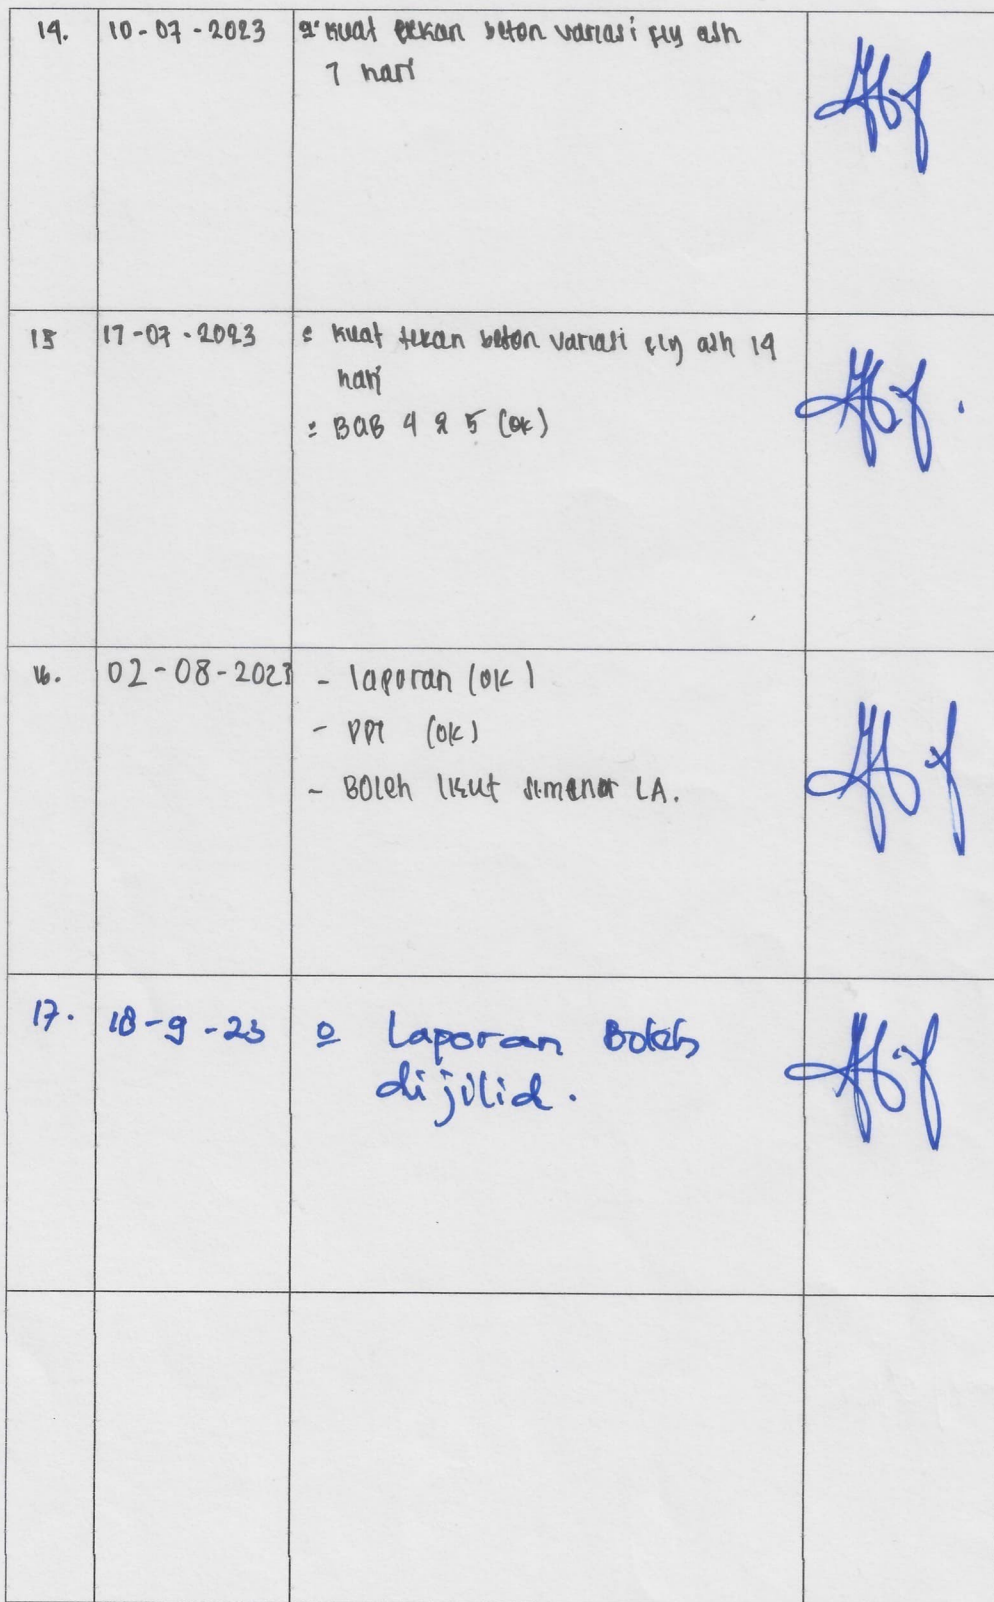 14. 10-07-2023 Kuat tekan beton variasi fly ash
7 hari
15 17-07-2023 Kuat tekan beton variasi fly ash 14
hari
BAB 4 & 5 (ok)
16. 02-08-2023 - laporan (ok)
- PPT (ok)
- Boleh ikut simenar LA.
17. 18-9-23 Laporan Boleh
dijilid.